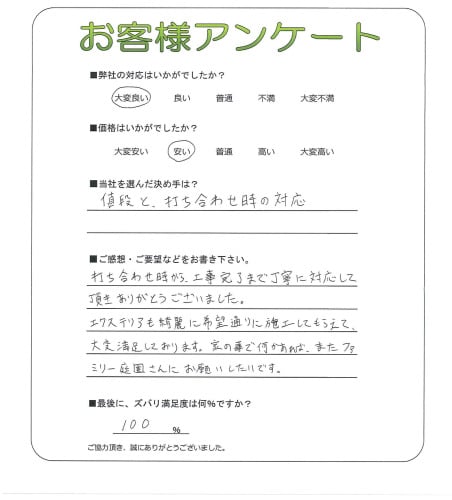 お客様アンケート
■弊社の対応はいかがでしたか？
大変良い 良い 普通 不満 大変不満
■価格はいかがでしたか？
大変安い 安い 普通 高い 大変高い
■当社を選んだ決め手は？
値段と、打ち合わせ時の対応
■ご感想・ご要望などをお書き下さい。
打ち合わせ時から、工事完了まで丁寧に対応して
頂きありがとうございました。
エクステリアも綺麗に希望通りに施工してもらえて、
大変満足しております。家の事で何かあれば、またファ
ミリー庭園さんにお願いしたいです。
■最後に、ズバリ満足度は何%ですか？
100 %
ご協力頂き、誠にありがとうございました。